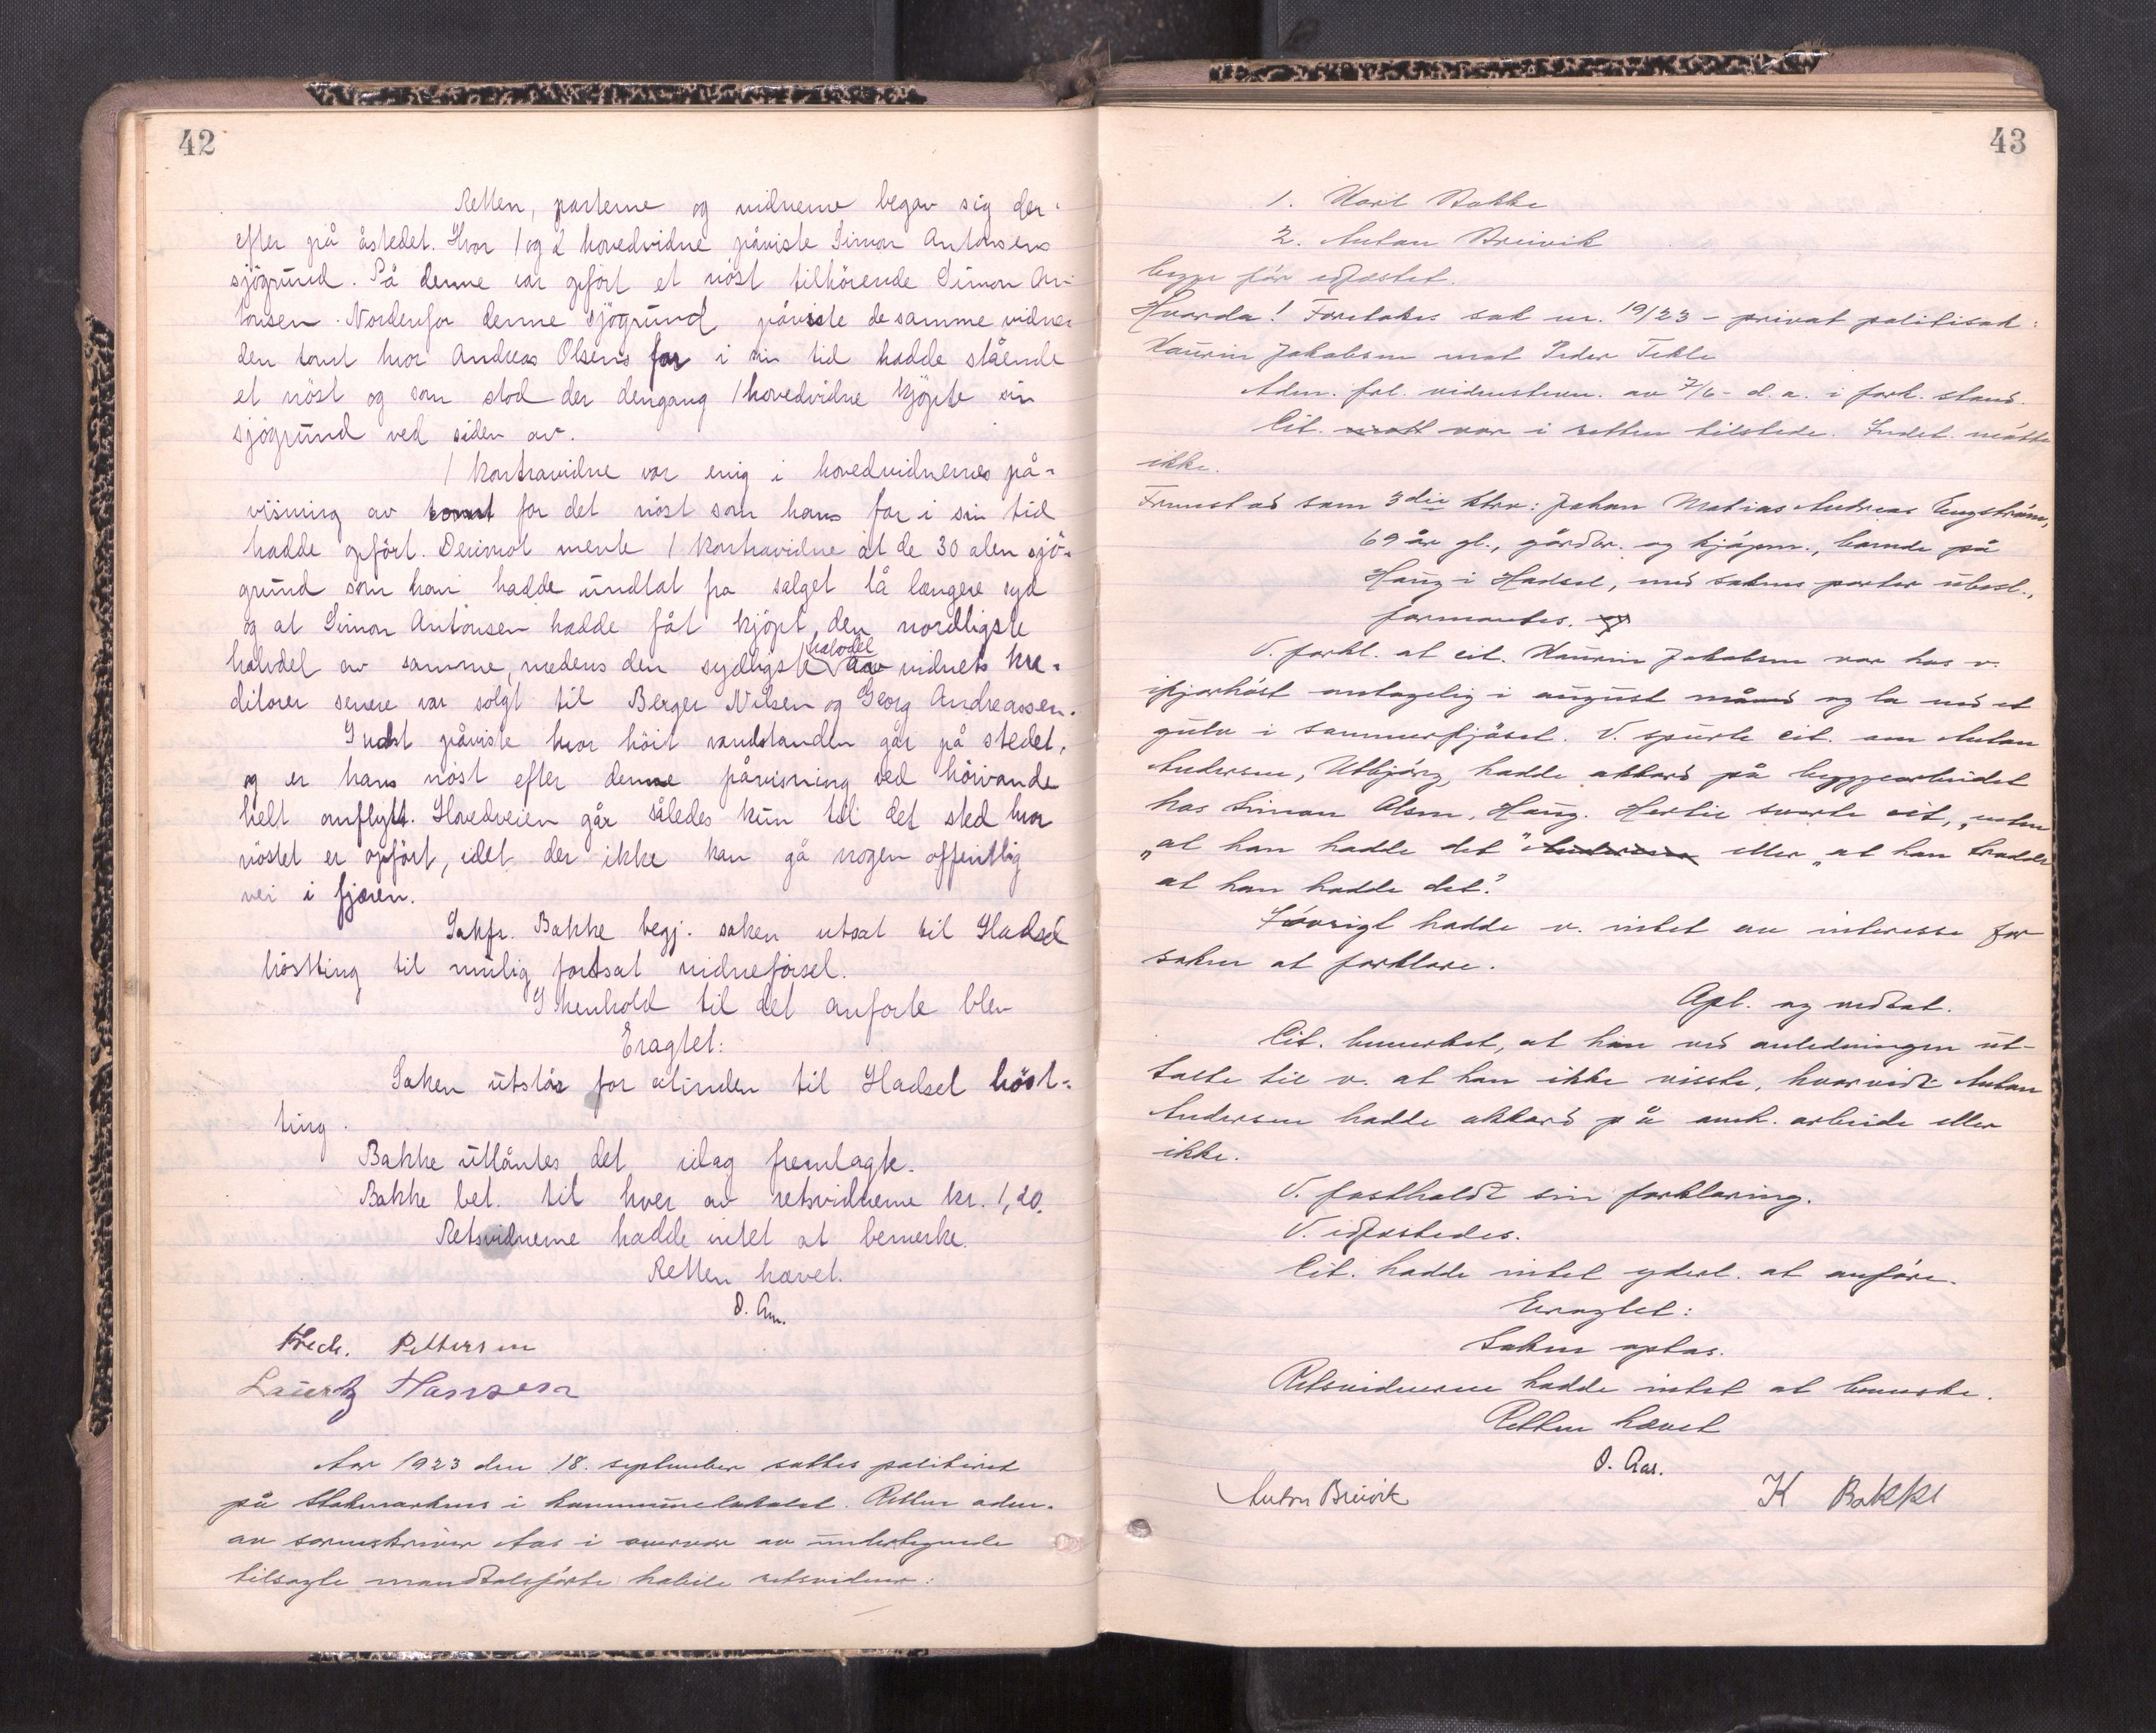 42
Retten, parterne og vidnerne begav sig der-
efter på åstedet. Hvor 1 og 2 hovedvidne påviste Simon Antonsens
sjögrund. På denne var opfört et nöst tilhörende Simon An-
tonsen. Nordenfor denne sjögrund påviste de samme vidner
den tomt hvor Andreas Olsens far i sin tid hadde stående
et nöst og som stod der dengang 1 hovedvidne kjöpte sin
sjögrund ved siden av.
1 kontravidne var enig i hovedvidnernes på-
visning av tomt for det nöst som hans far i sin tid
hadde opfört. Derimot mente 1 kontravidne at de 30 alen sjö-
grund som han hadde undtat fra salget lå længere syd
og at Simon Antonsen hadde fåt kjöpt den nordligste
halvdel av samme, medens den sydligste halvdel av vidnets kre-
ditorer senere var solgt til Berger Nilsen og Georg Andreassen.
Indst påviste hvor höit vandstanden går på stedet,
og er hans nöst efter denne påvisning ved höivande
helt omflytt. Hovedveien går således kun til det sted hvor
nöstet er opfört, idet der ikke kan gå nogen offentlig
vei i fjæren.
Sakfr. Bakke begj. saken utsat til Hadsel
höstting til mulig fortsat vidneförsel.
I henhold til det anforte blev
Eragtet:
Saken utstår for atinden til Hadsel höst-
ting.
Bakke utlåntes det idag fremlagte.
Bakke bet. til hver av retsvidnerne kr. 1,20.
Retsvidnerne hadde intet at bemerke.
Retten hævet.
O. Aas.
Fredr. Pettersen
Lauertz Hansen
Aar 1923 den 18. september sattes politiret
på Stokmarknes i kommunelokalet. Retten adm.
av sorenskriver Aas i overvær av undertegnede
tilsagte mandtalsförte habile retsvidner:
43
1. Karl Bakke
2. Anton Breivik
begge för edfæstet.
Hvorda! Foretokes sak nr. 19/23 - privat politisak:
Kaurin Jakobsen mot Peder Tekle
Adm. frl. vidnestevn. av 7/6- d.a. i fork. stand.
Cit. mött var i retten tilstede. Indst. mötte
ikke.
Fremstod som 3die vidne: Johan Mathias Andreas Engström,
69 år gl., gårdbr. og kjöpm., boende på
Haug i Hadsel, med sakens parter ubesl.,
formantes.
V. forkl. at cit. Kaurin Jakobsen var hos v.
ifjorhöst antagelig i august måned og la ned et
gulv i sommerfjöset. V. spurte cit. om Anton
Andersen, Utbjörg, hadde akkord på byggearbeidet
hos Simon Olsen, Haug. Hertil svarte cit, "enten
"at han hadde det" Andersen eller "at han trodde
at han hadde det".
Iövrigt hadde v. intet av interesse for
saken at forklare.
Opl. og vedtat.
Cit. bemerket, at han ved anledningen ut-
talte til v. at han ikke visste, hvorvidt Anton
Andersen hadde akkord på omh. arbeide eller
ikke.
V. fastholdt sin forklaring.
V. edfæstedes.
Cit. hadde intet yderl. at anföre.
Eragtet:
Saken optas.
Retsvidnerne hadde intet at bemerke.
Retten hævet
O. Aas.
Anton Breivik K Bakke